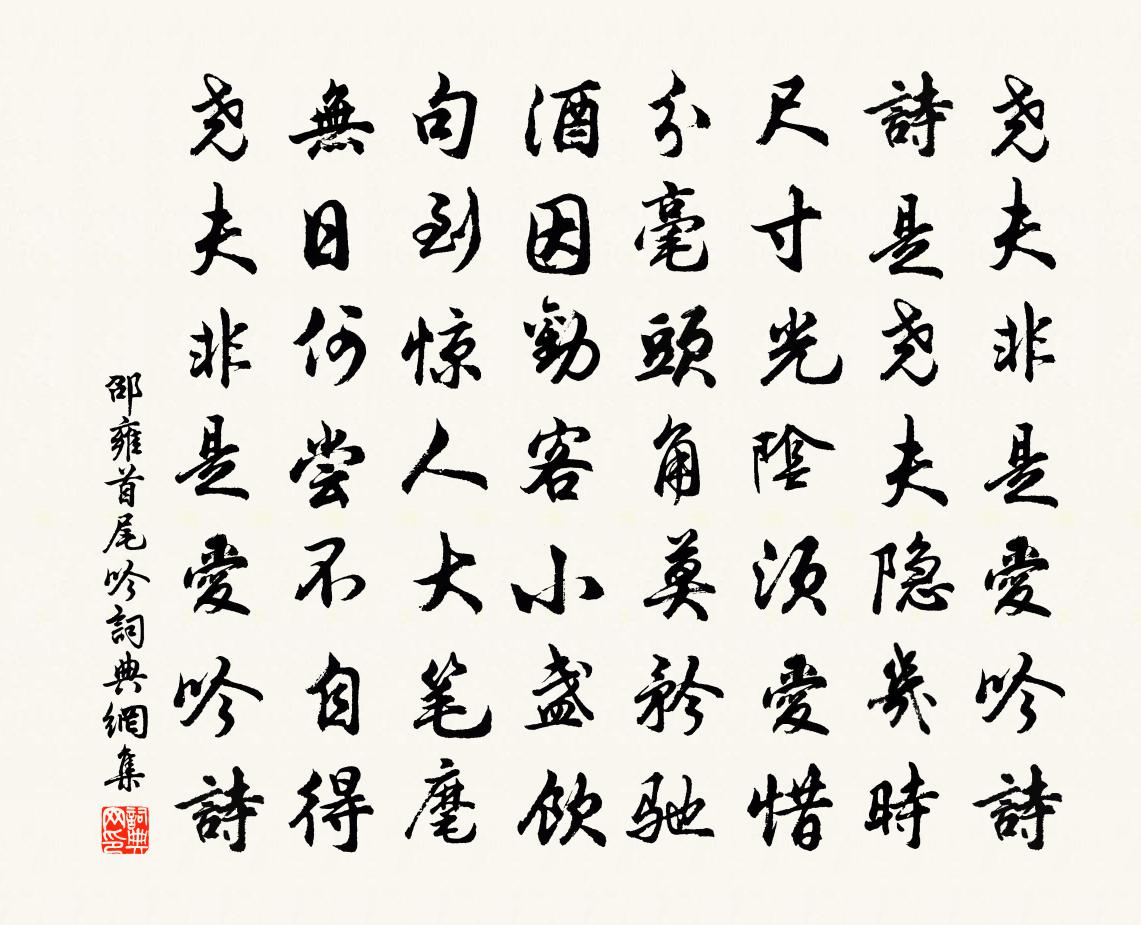 尧夫非是愛吟詩
詩是尧夫隐幾時
尺寸光陰須愛惜
分毫頭角莫矜馳
酒因勸客小盏飲
句到惊人大笔麾
無日何嘗不自得
尧夫非是愛吟詩
邵雍首尾吟詞典網集
詞典
网印